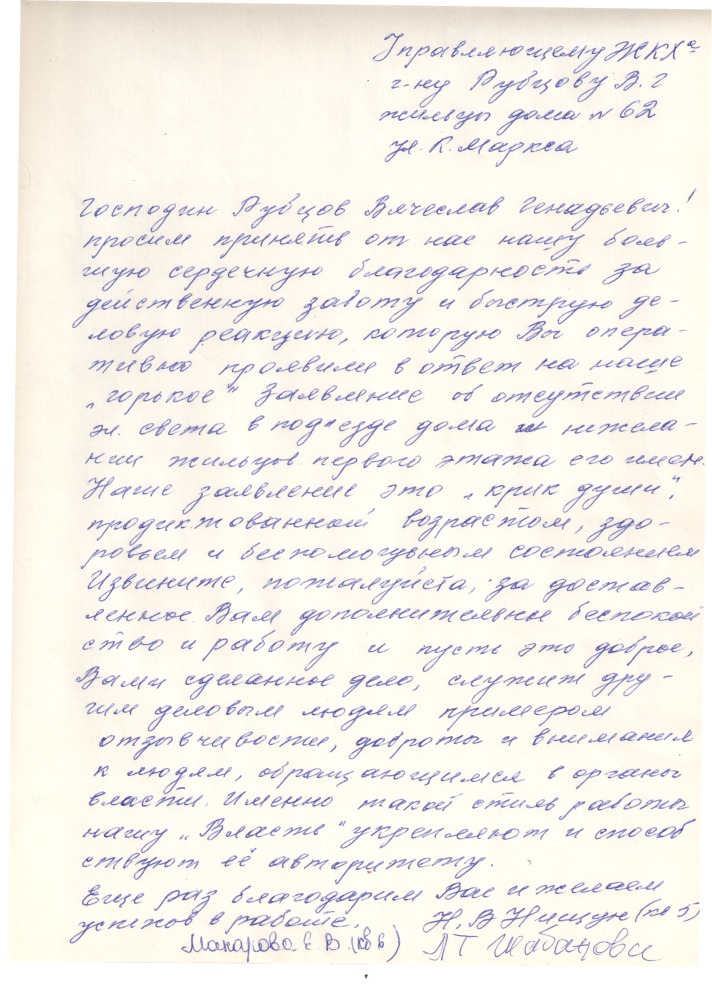 Управляющему ЖКХа
г-ну Рубцову В. Г
жильцы дома № 62
ул. К. Маркса
Господин Рубцов Вячеслав Генадьевич!
просим принять от нас нашу боль-
шую сердечную благодарность за
действенную заботу и быструю де-
ловую реакцию, которую Вы опера-
тивно проявили в ответ на наше
„горькое" заявление об отсутствии
эл. света в подъезде дома и нежела-
нии жильцов первого этажа его имен.
Наше заявление это „крик души",
продиктованной возрастом, здо-
ровьем и беспомощным состоянием
Извините, пожалуйста, за достав-
ленное Вам дополнительное беспокой
ство и работу и пусть это доброе,
Вами сделанное дело, служит дру-
гим деловым людям примером
отзывчивости, доброты и внимания
к людям, обращающимся в органы
власти. Именно такой стиль работы
нашу „Власть" укрепляют и способ
ствуют её авторитету.
Еще раз благодарим Вас и желаем
успехов в работе. Н. В Нищун (кв 5)
Макарова Е. В. (кв 6) Л Т Шабанова